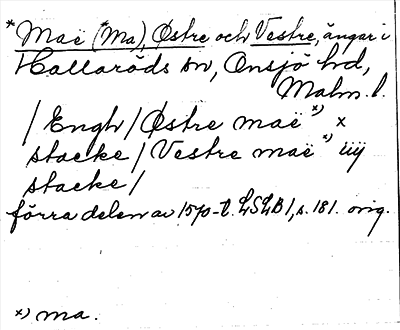 *Maë (*Ma), Østre och Vestre, ängar i
Hallaröds sn, Onsjö hd,
Malm. l.
/ Engh / Østre maë *) x
stacke / Vestre maë *) iiij
stacke /
förra delen av 1570-t. LSLB 1, s. 181. orig.
*) ma.